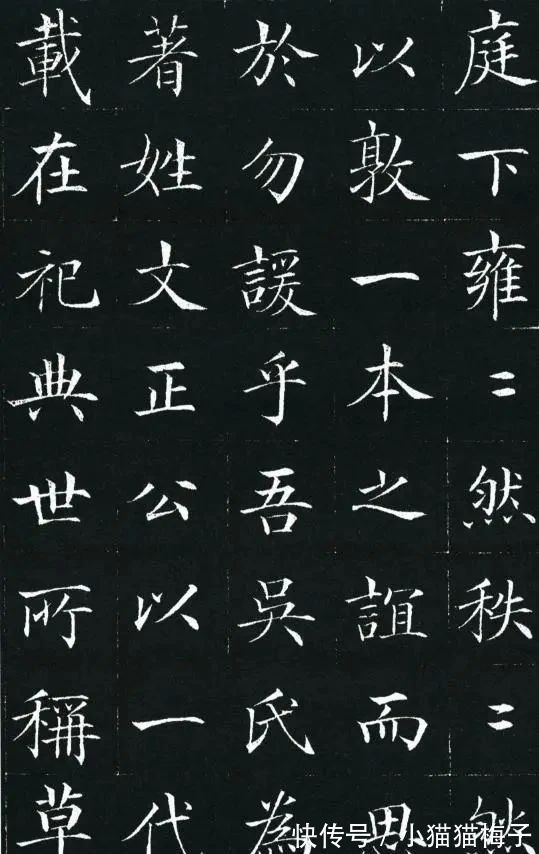 庭下雍〻然秩〻然
以敦一本之誼而思
於勿諼乎吾吳氏為
著姓文正公以一代
載在祀典世所稱草
快传号/小猫猫梅子